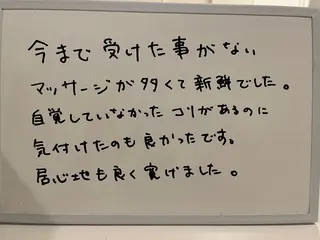 今まで受けた事がない
マッサージが多くて新鮮でした。
自覚していなかったコリがあるのに
気付けたのも良かったです。
居心地も良く寛げました。